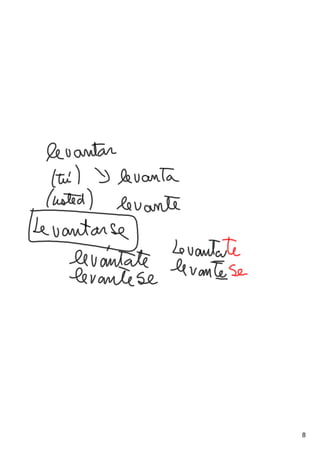 levantar
(tú) ↘ levanta
(usted) levante
Levantarse
levántate Levantate
levantese levantese
8